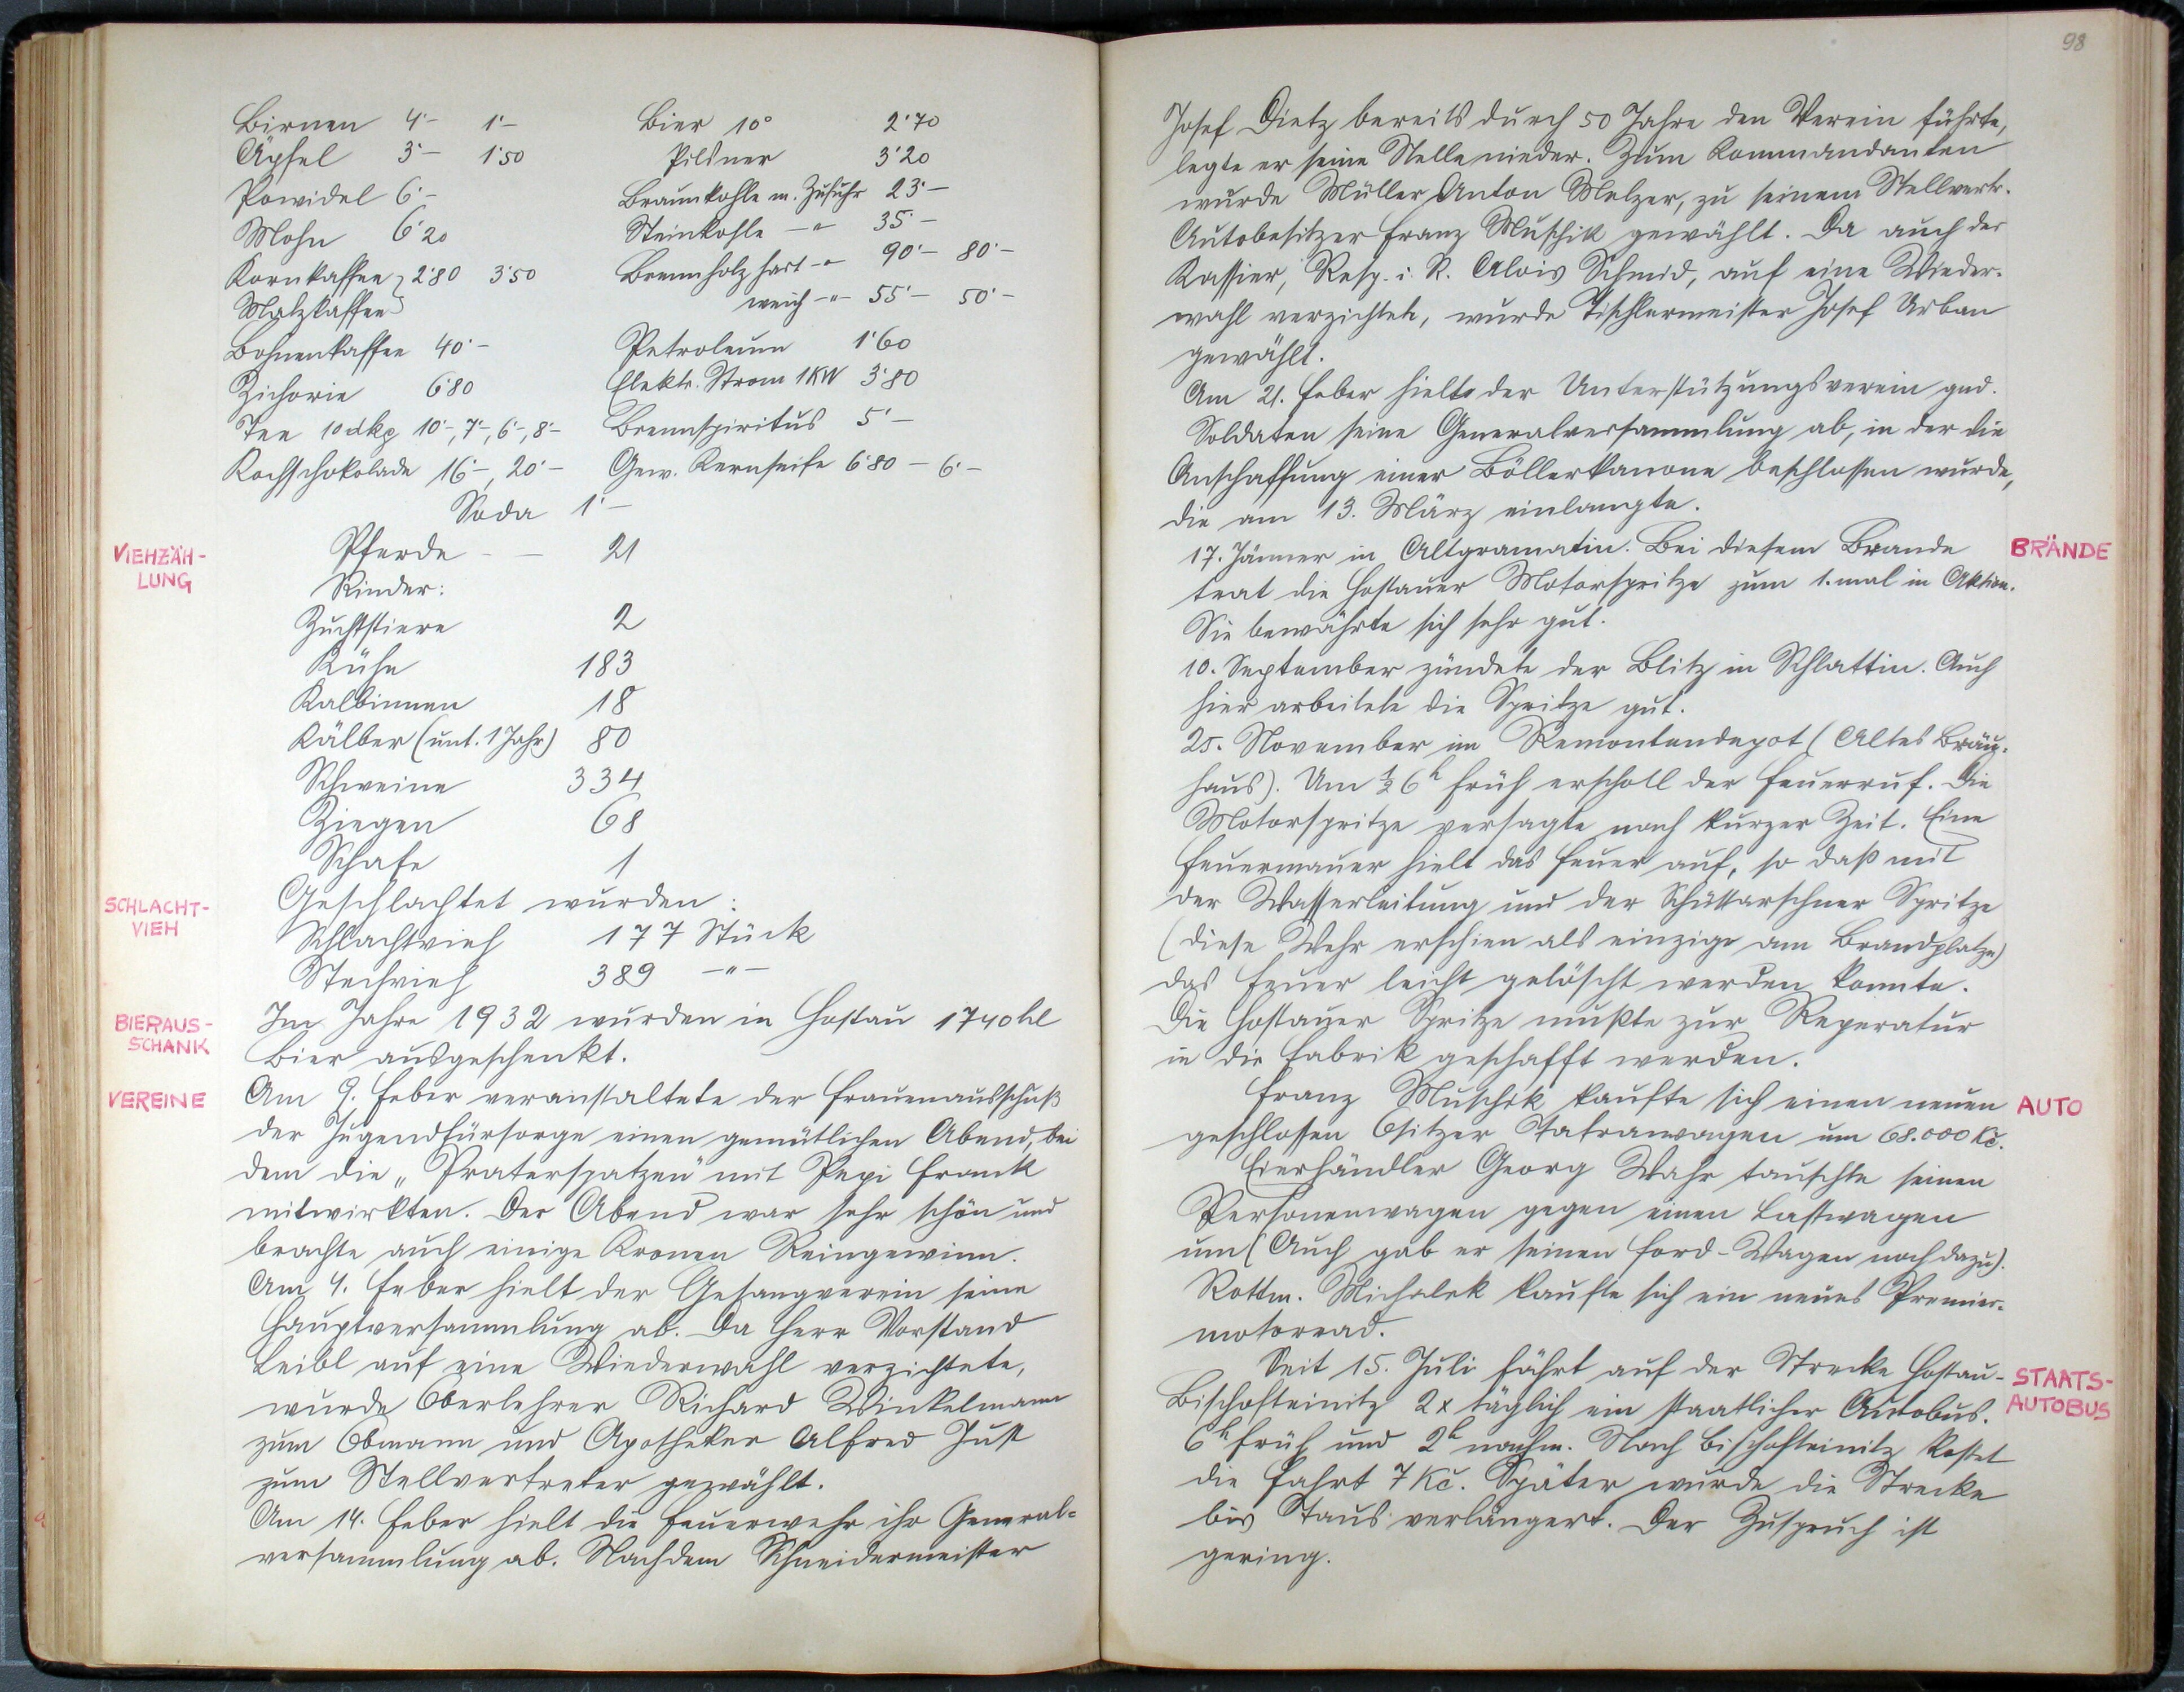 98
Birnen 4·– 1·–
Äpfel 3·– 1·50
Powidel 6·–
Mohn 6·20
Kornkaffee } 2·80 3·50
Malzkaffee
Bohnenkaffee 40·–
Zichorie 6·80
Tee 10 dkg 10·–, 7·–, 6·–, 8·–
Kochschokolade 16·–, 20·–
Bier 10° 2·70
Pilsner 3·20
Braunkohle m. Zufuhr 23·–
Steinkohle –"– 35·–
Brennholz hart –"– 90·– 80·–
weich –"– 55·– 50·–
Petroleum 1·60
Elektr. Strom 1KW 3·80
Brennspiritus 5·–
Gew. Kernseife 6·80 – 6·–
Soda 1·–
VIEHZÄH-
LUNG
Pferde – – 21
Rinder:
Zuchtstiere 2
Kühe 183
Kalbinnen 18
Kälber (unt. 1 Jahr) 80
Schweine 334
Ziegen 68
Schafe 1
SCHLACHT-
VIEH
Geschlachtet wurden:
Schlachtvieh 177 Stück
Stechvieh 389 –"–
BIERAUS-
SCHANK
Im Jahre 1932 wurden in Hostau 1740 hl
Bier ausgeschenkt.
VEREINE
Am 9. Feber veranstaltete der Frauenausschuß
der Jugendfürsorge einen gemütlichen Abend, bei
dem die „Praterspatzen" mit Pepi Frank
mitwirkten. Der Abend war sehr schön und
brachte auch einige Kronen Reingewinn.
Am 4. Feber hielt der Gesangverein seine
Hauptversammlung ab. Da Herr Vorstand
Leibl auf eine Wiederwahl verzichtete,
wurde Oberlehrer Richard Winkelmann
zum Obmann und Apotheker Alfred Just
zum Stellvertreter gewählt.
Am 14. Feber hielt die Feuerwehr ihr General-
versammlung ab. Nachdem Schneidermeister
Josef Dietz bereits durch 50 Jahre den Verein führte,
legte er seine Stelle nieder. Zum Kommandanten
wurde Müller Anton Melzer, zu seinem Stellvertr.
Autobesitzer Franz Muschik gewählt. Da auch der
Kassier, Resp. i. R. Alois Schmid, auf eine Wieder-
wahl verzichtete, wurde Tischlermeister Josef Urban
gewählt.
Am 21. Feber hielt der Unterstützungsverein ged.
Soldaten seine Generalversammlung ab, in der die
Anschaffung einer Böllerkanone beschlossen wurde,
die am 13. März einlangte.
BRÄNDE
17. Jänner in Altgramatin. Bei diesem Brande
trat die Hostauer Motorspritze zum 1. mal in Aktion.
Sie bewährte sich sehr gut.
10. September zündete der Blitz in Schlattin. Auch
hier arbeitete die Spritze gut.
25. November im Remontendepot (Altes Bräu-
haus). Um ½ 6h früh erscholl der Feuerruf. Die
Motorspritze versagte nach kurzer Zeit. Eine
Feuermauer hielt das Feuer auf, so daß mit
der Wasserleitung und der Schüttarschner Spritze
(diese Wehr erschien als einzige am Brandplatze)
das Feuer leicht gelöscht werden konnte.
Die Hostauer Spritze mußte zur Reperatur
in die Fabrik geschafft werden.
AUTO
Franz Muschik kaufte sich einen neuen
geschlossen 6sitzer Tatrawagen um 68.000 Kč.
Eierhändler Georg Wahr tauschte seinen
Personenwagen gegen einen Lastwagen
um (Auch gab er seinen Ford-Wagen noch dazu).
Rottm. Michalek kaufte sich ein neues Premier-
motorrad.
STAATS-
AUTOBUS
Seit 15. Juli fährt auf der Strecke Hostau-
Bischofteinitz 2x täglich ein staatlicher Autobus.
6h früh und 2h nachm. Nach Bischofteinitz kostet
die Fahrt 7 Kč. Später wurde die Strecke
bis Taus verlängert. Der Zuspruch ist
gering.